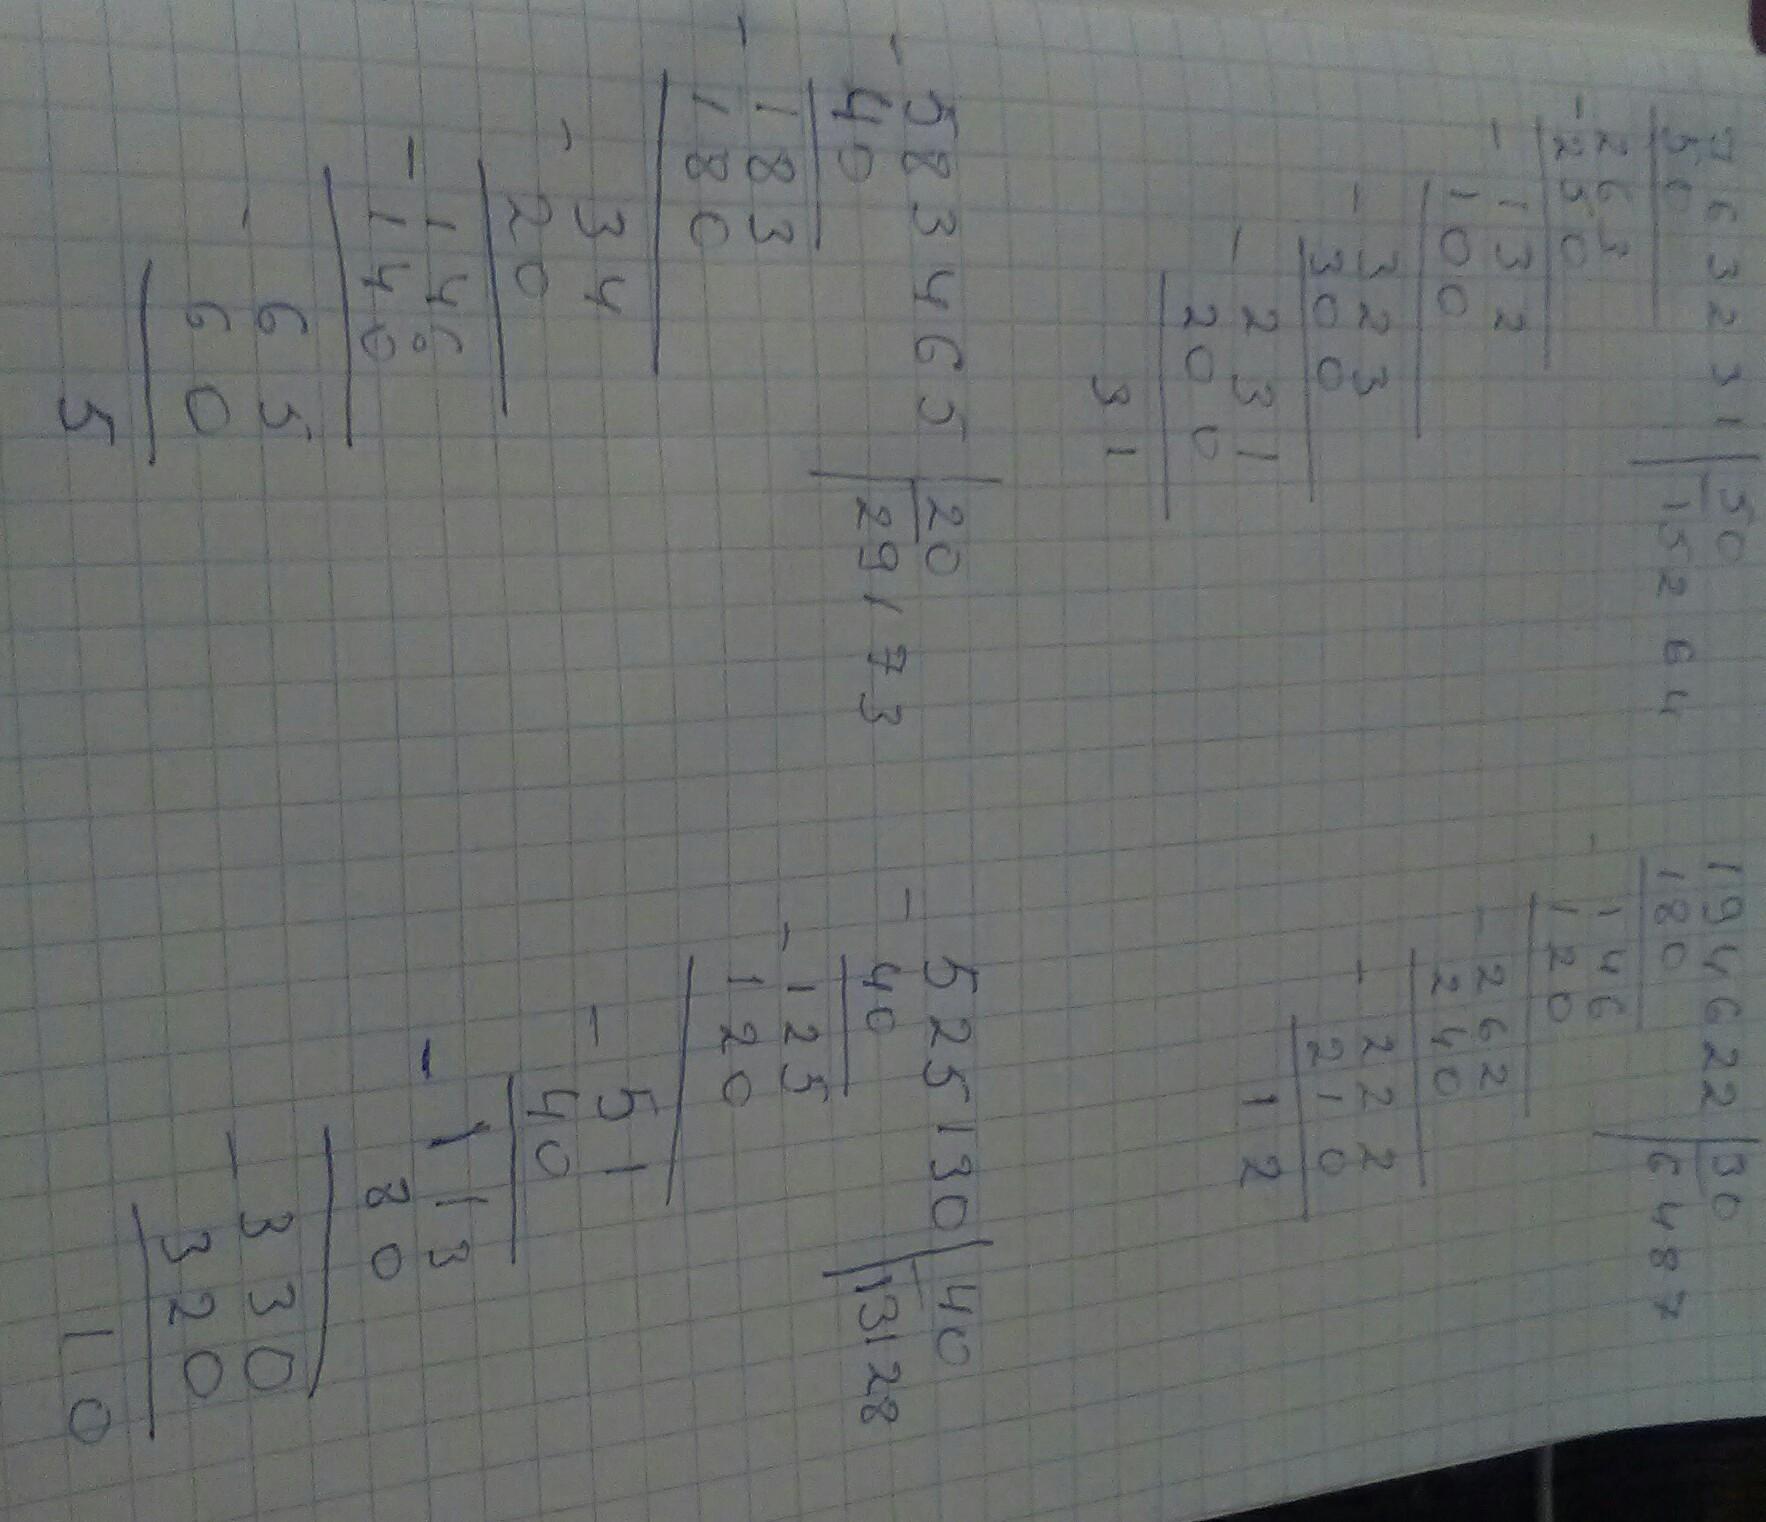 763231 | 50
50 | 15264
- 263
250
- 132
100
- 323
300
- 231
200
31
194622 | 30
180 | 6487
- 146
120
- 262
240
- 222
210
12
- 583465 | 20
40 | 29173
- 183
180
- 34
20
- 146
140
- 65
60
5
- 525130 | 40
40 | 13128
- 125
120
- 51
40
- 113
80
- 330
320
10